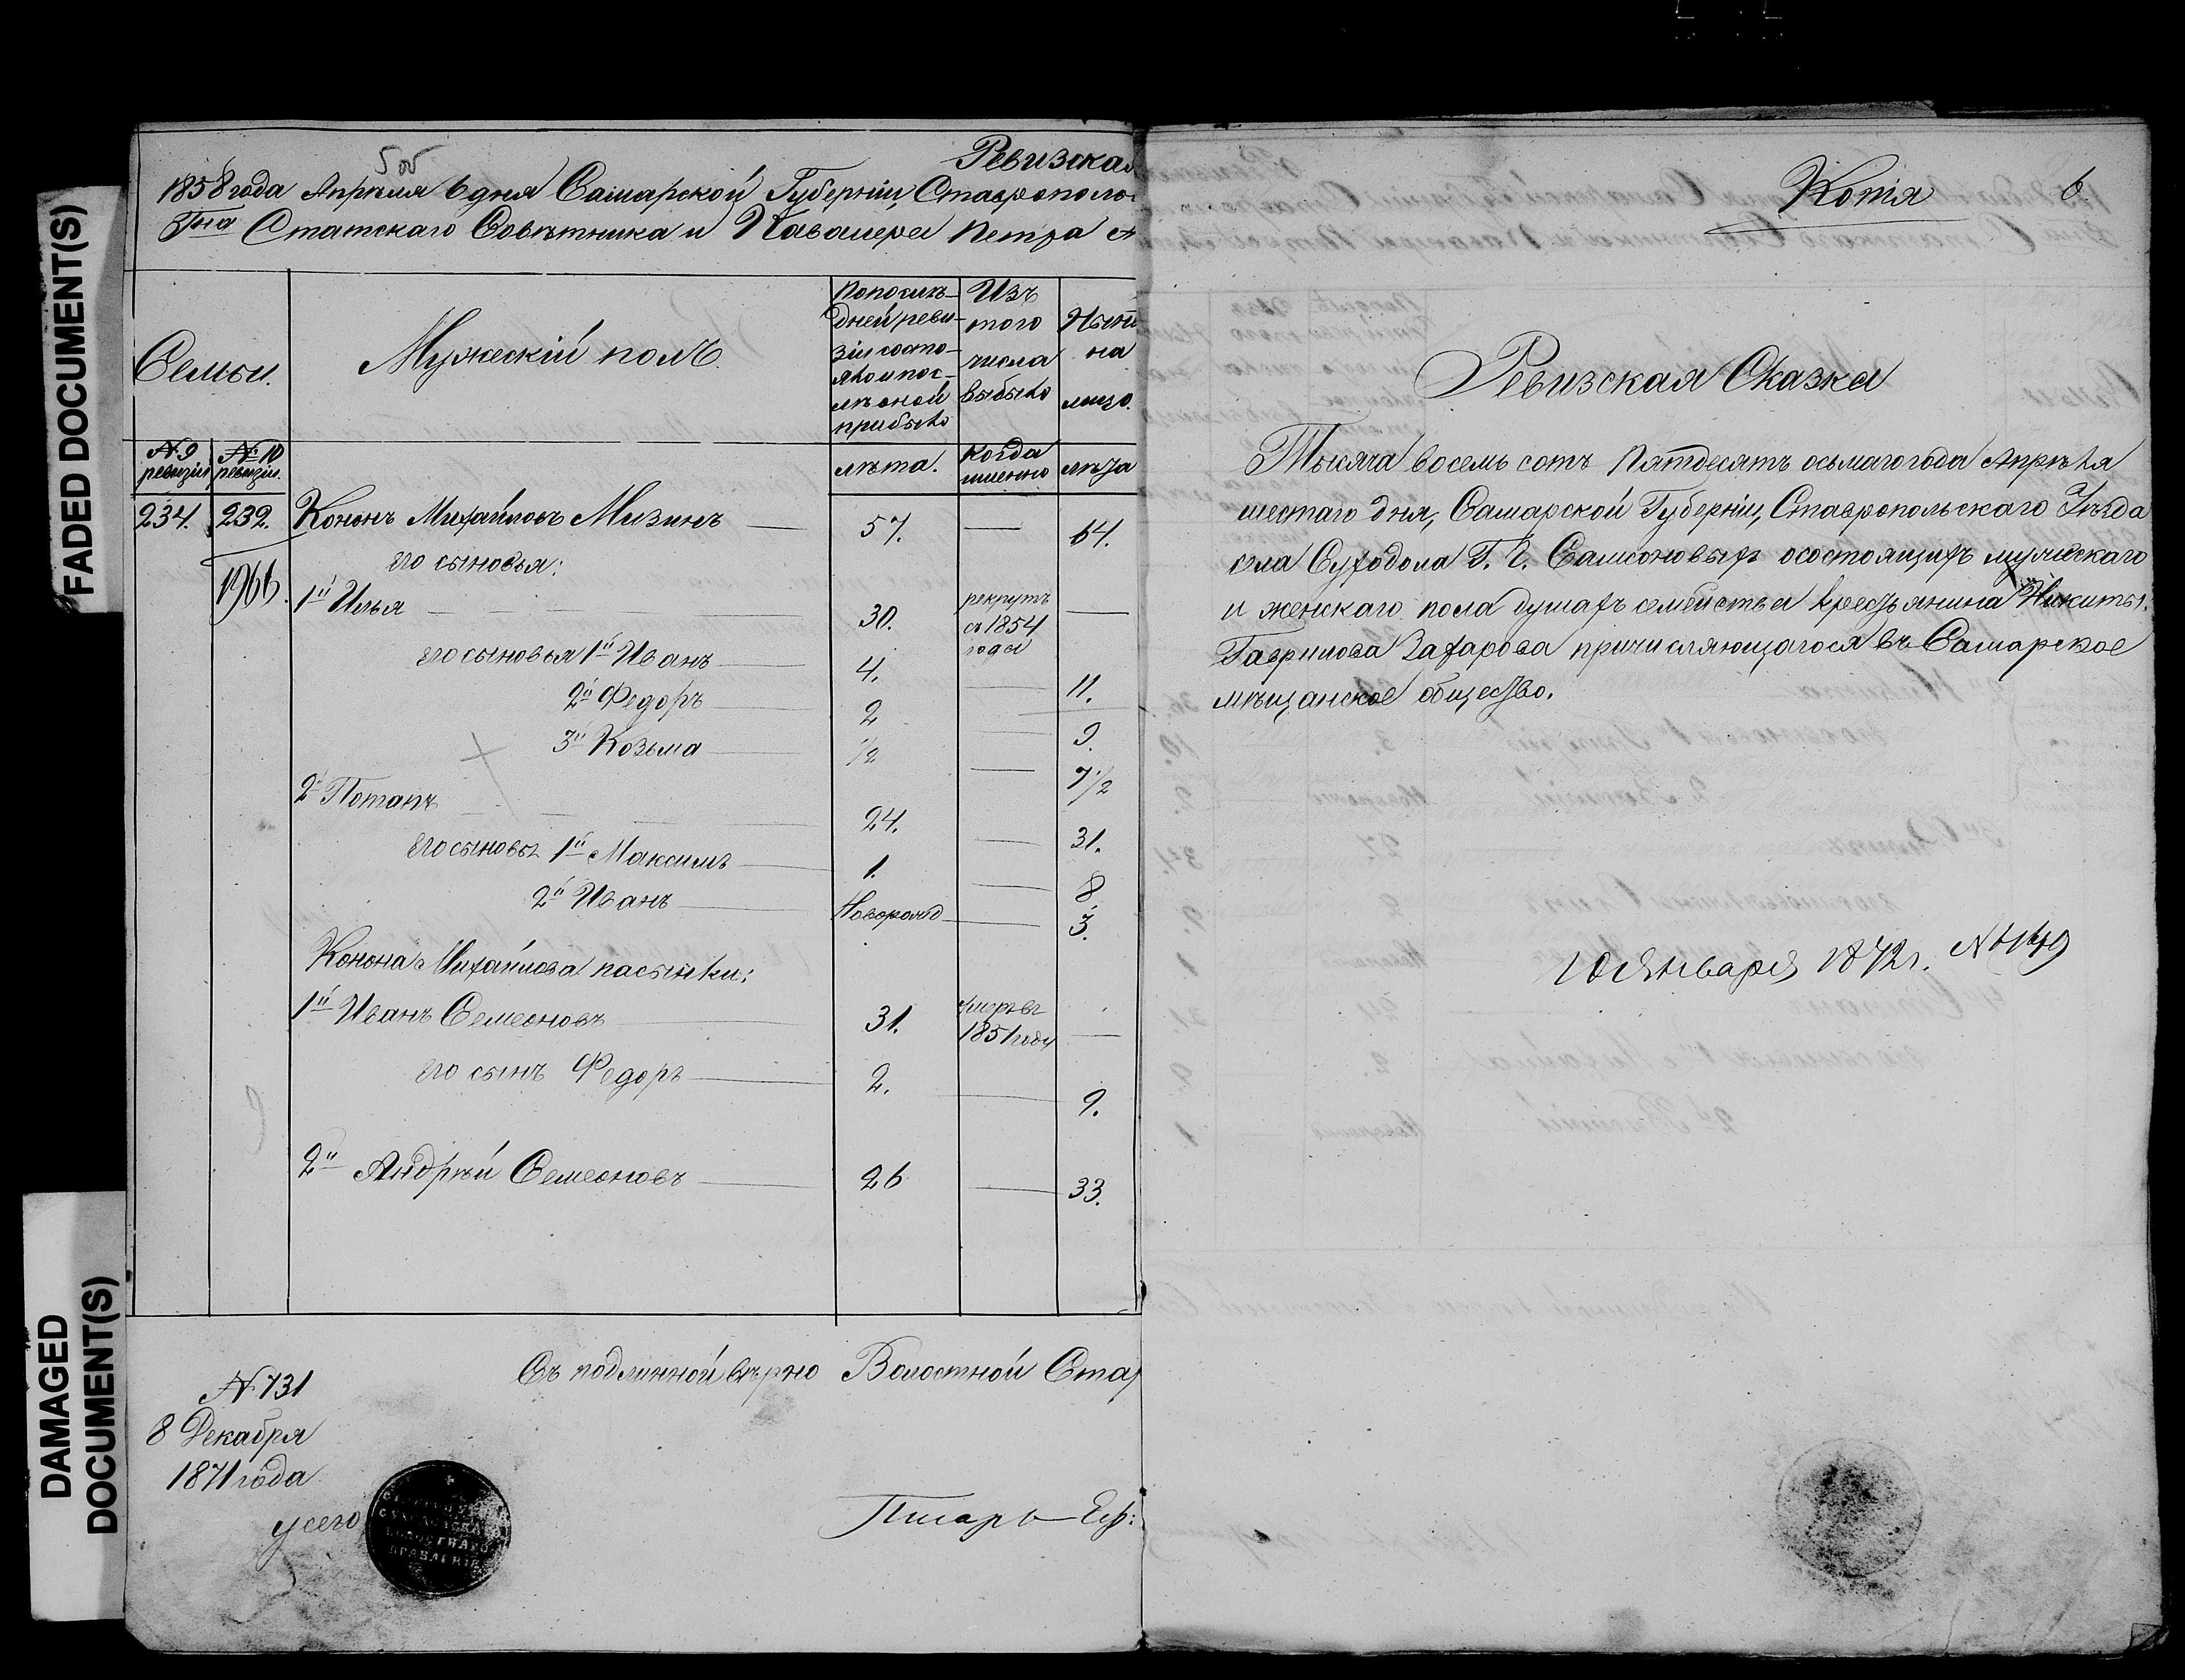 FADED DOCUMENT(S)
DAMAGED
DOCUMENT(S)
5 об
Ревизская
1858 года Апрѣля 6 дня Самарской Губерніи, Ставрополь
Гна Статскаго Совѣтника и Кавалера Петра А
Семьи.
Мужескій полъ.
По послѣ-
дней реви-
зіи состо-
яло и пос-
лѣ оной
прибыло
Изъ
того
числа
выбыло
Нынѣ
на
лицо.
№ 9
ревизіи
№ 10
ревизіи.
лѣта.
когда
именно
лѣта
234. 232. Кононъ Михайловъ Мизинъ 57. 64.
его сыновья:
1966.
1й Илья 30. рекрутъ
съ 1854
года
его сыновья 1й Иванъ 4. 11.
2й Федоръ 2 9.
3й Козьма 1/2 7 1/2
2й Потапъ 24. 31.
его сыновья 1й Максимъ 1. 8
2й Иванъ Новорожд 3.
Конона Михайлова пасынки:
1й Иванъ Семеоновъ 31. умеръ въ
1851 году
его сынъ Федоръ 2. 9.
2й Андрѣй Семеоновъ 26 33.
Съ подлинной вѣрно Волостной Стар
№ 731
8 Декабря
1871 года
Писарь Еф:
Копія
6.
Ревизская Сказка
Тысяча восемь сотъ пятдесятъ осьмаго года Апрѣля
шестаго дня, Самарской Губерніи, Ставропольскаго Уѣзда
села Суходола Г. Г. Самсоновыхъ о состоящихъ мужескаго
и женскаго пола душахъ семейства крестьянина Никиты
Гаврилова Захарова причисляющагося въ Самарское
мѣщанское общество.
10 Января 1872 г. №